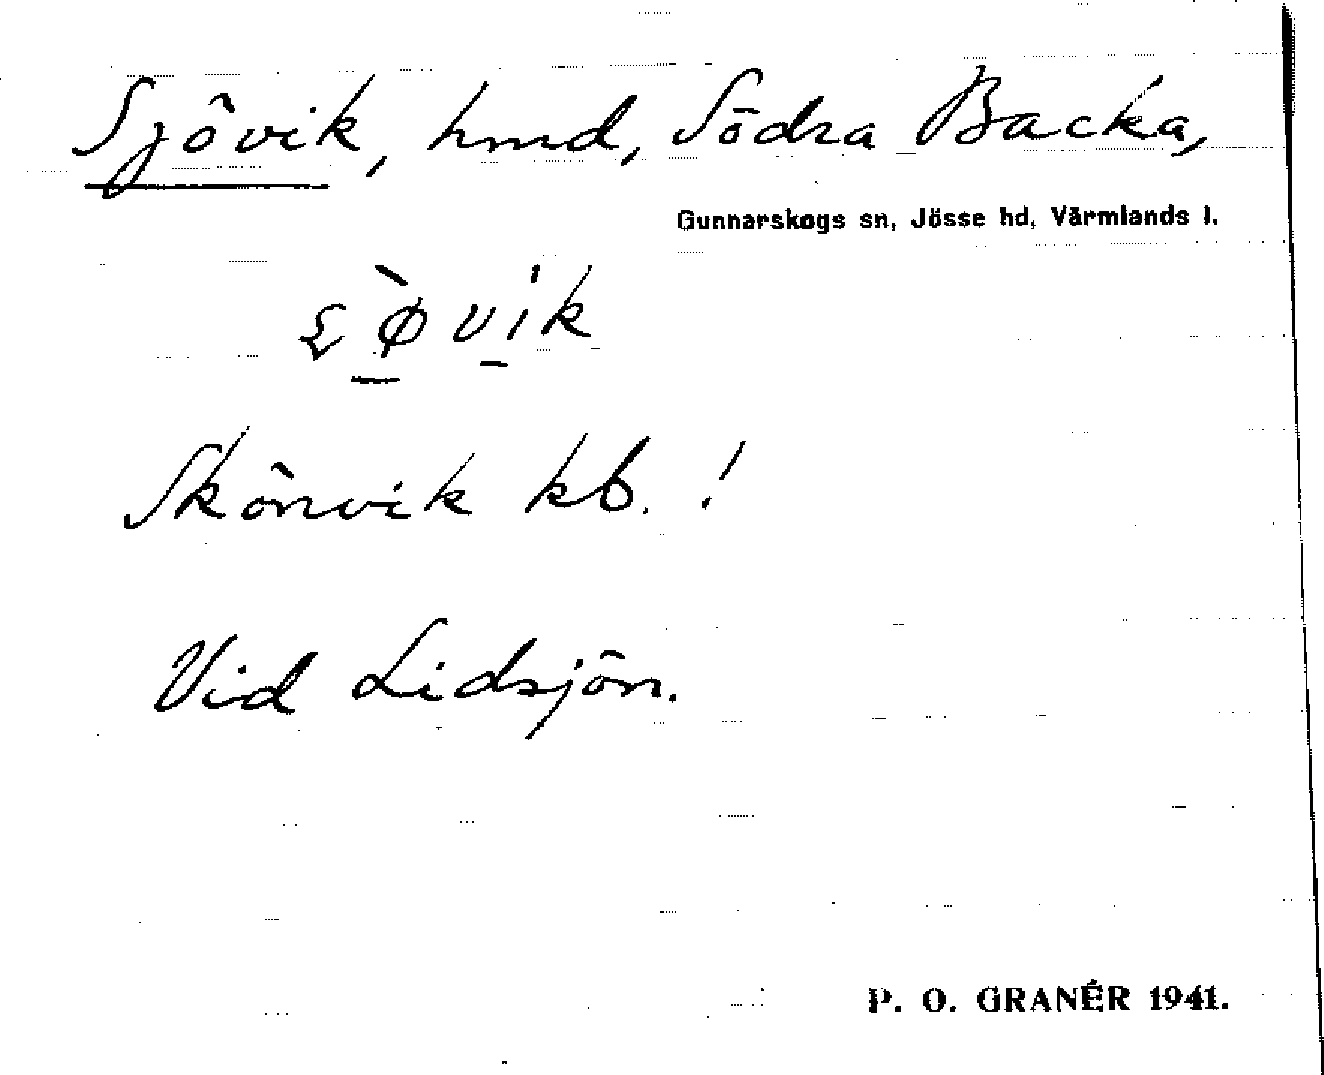 Sjövik, hmd, Södra Backa,
Gunnarskogs sn, Jösse hd, Värmlands l.
Skönvik kb. !
Vid Lidsjön.
P. O. GRANÉR 1941.